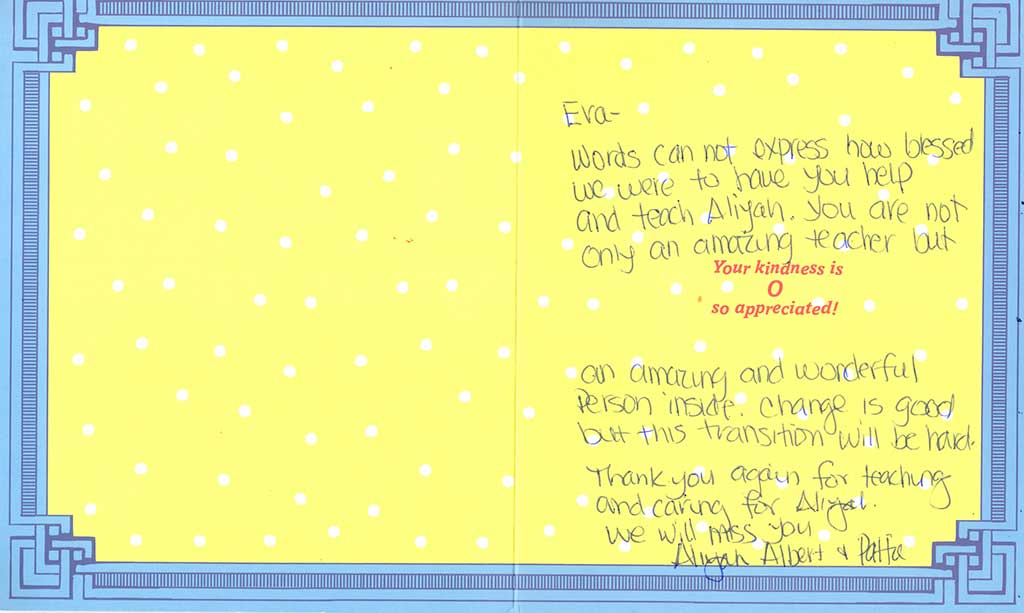 Eva-
Words can not express how blessed
we were to have you help
and teach Aliyah. You are not
only an amazing teacher but
Your kindness is
O
so appreciated!
an amazing and wonderful
Person inside. Change is good
but this transition will be hard.
Thank you again for teaching
and caring for Aliyah.
We will miss you
Aliyah Albert &